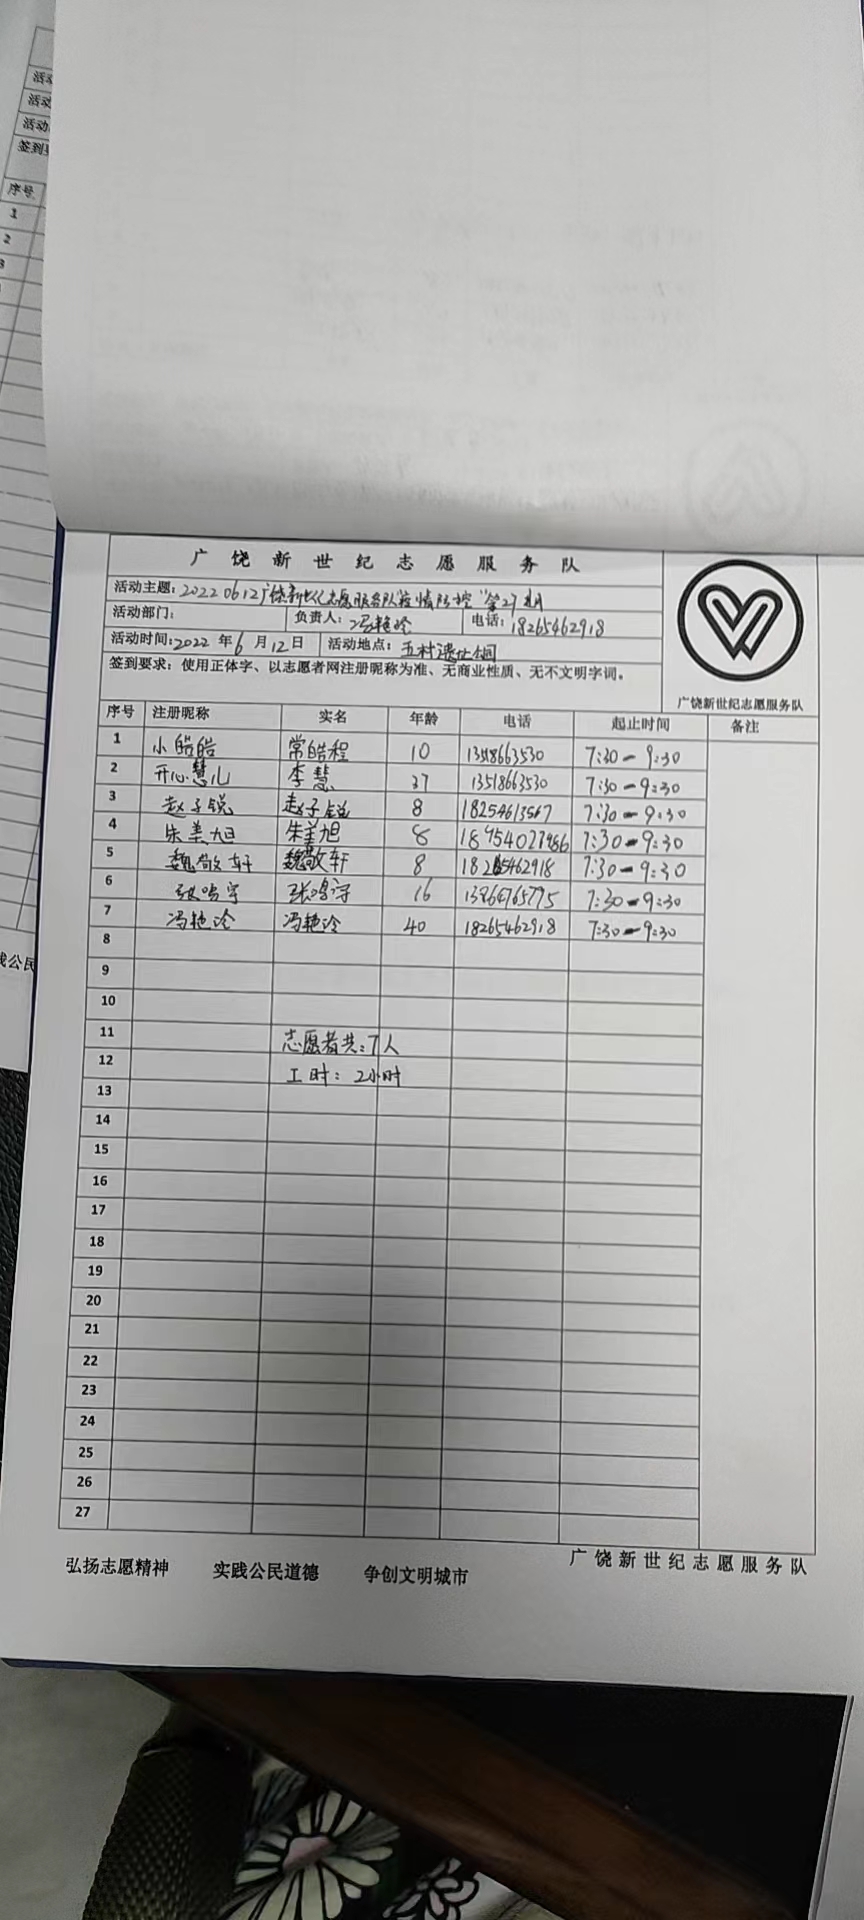 活动
活动
活动
签到
序号
1
2
3
广饶新世纪志愿服务队
活动主题：20220612广饶新世纪志愿服务队疫情防控"第27期
活动部门： 负责人：冯艳玲 电话：18265462918
活动时间：2022年6月12日 活动地点：五村遗址公园
签到要求：使用正体字、以志愿者网注册昵称为准、无商业性质、无不文明字词。
广饶新世纪志愿服务队
序号 注册昵称 实名 年龄 电话 起止时间 备注
1 小皓皓 常皓程 10 13518663530 7:30-9:30
2 开心慧儿 李慧 37 13518663530 7:30-9:30
3 赵子锐 赵子锐 8 18254613567 7:30-9:30
4 朱美旭 朱美旭 8 7:30-9:30
5 魏敬轩 魏敬轩 8 18265462918 7:30-9:30
6 张鸣宇 16 7:30-9:30
7 冯艳玲 冯艳玲 40 18265462918 7:30-9:30
8
9
10
11 志愿者共：7人
12 工时：2小时
13
14
15
16
17
18
19
20
21
22
23
24
25
26
27
弘扬志愿精神 实践公民道德 争创文明城市 广饶新世纪志愿服务队